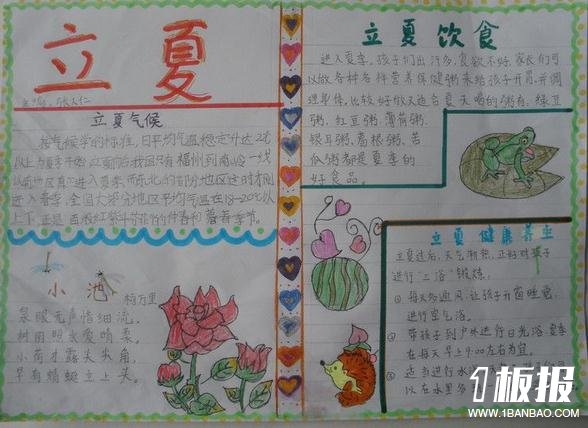 立夏
立夏气候
按气候学的标准,日平均气温稳定升达22℃
以上为夏季开始,立夏前后,我国只有福州到南岭一线
以南地区真正进入夏季,而东北的部分地区这时才刚
进入春季,全国大部分地区平均气温在18~20℃以
上下,正是
的仲春和暮春季节。
小池
杨万里
泉眼无声惜细流,
树阴照水爱晴柔。
小荷才露尖尖角,
早有蜻蜓立上头。
立夏饮食
进入夏季,孩子们出汗多,食欲不好,家长们可
以做各种各样营养保健粥来给孩子开胃,并调
理身体,比较好做又适合夏天喝的粥有:绿豆
粥、红豆粥、薄荷粥、
银耳粥、葛根粥、苦
瓜粥都是夏季的
好食品。
立夏健康养生
立夏过后,天气渐热,正好对孩子
进行"三浴"锻炼。
①每天多通风,让孩子开窗睡觉,
进行空气浴。
②带孩子到户外进行日光浴,夏季
在每天早上9:00左右为宜。
③适当进行水浴
以在水里多
1板报
WWW.1BANBAO.COM